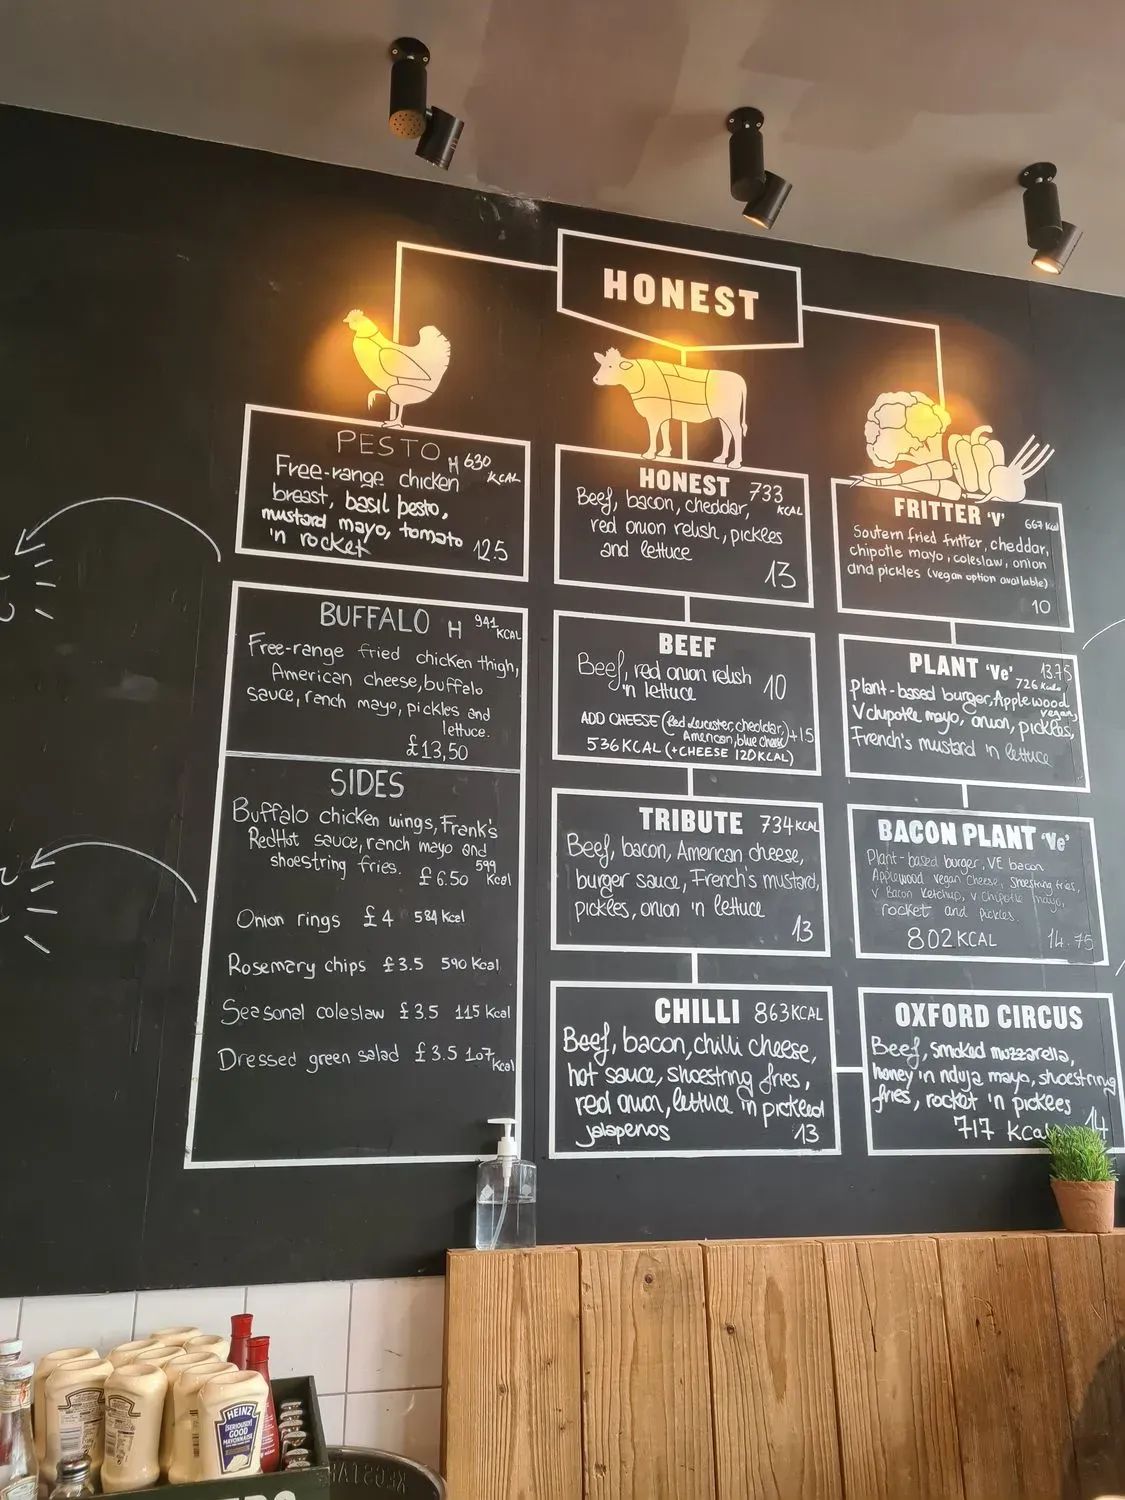 HONEST
PESTO H 630 KCAL
Free-range chicken
breast, basil pesto,
mustard mayo, tomato
'n rocket 12.5
BUFFALO H 941 KCAL
Free-range fried chicken thigh,
American cheese, buffalo
sauce, ranch mayo, pickles and
lettuce.
£13,50
SIDES
Buffalo chicken wings, Frank's
RedHot sauce, ranch mayo and
shoestring fries. £6.50 599 Kcal
Onion rings £4 584 Kcal
Rosemary chips £3.5 590 Kcal
Seasonal coleslaw £3.5 115 Kcal
Dressed green salad £3.5 107 Kcal
HONEST 733 KCAL
Beef, bacon, cheddar,
red onion relish, pickles
and lettuce
13
BEEF
Beef, red onion relish
'n lettuce 10
ADD CHEESE (Red Leicester, cheddar,
American, blue cheese) +1.5
536 KCAL (+CHEESE 120KCAL)
TRIBUTE 734 KCAL
Beef, bacon, American cheese,
burger sauce, French's mustard,
pickles, onion 'n lettuce
13
CHILLI 863 KCAL
Beef, bacon, chilli cheese,
hot sauce, shoestring fries,
red onion, lettuce 'n pickled
jalapenos 13
FRITTER 'V' 667 Kcal
Soutern fried fritter, cheddar,
chipotle mayo, coleslaw, onion
and pickles (vegan option available)
10
PLANT 'Ve' 13.75
726 Kcals
Plant-based burger, Applewood vegan,
V chipotle mayo, onion, pickles,
French's mustard 'n lettuce
BACON PLANT 'Ve'
Plant-based burger, VE bacon
Applewood vegan Cheese, shoestring fries,
V Bacon Ketchup, V Chipotle mayo,
rocket and pickles.
802 KCAL 14.75
OXFORD CIRCUS
Beef, smoked mozzarella,
honey 'n nduja mayo, shoestring
fries, rocket 'n pickles
717 Kcal 14
HEINZ
[SERIOUSLY]
GOOD
MAYONNAISE